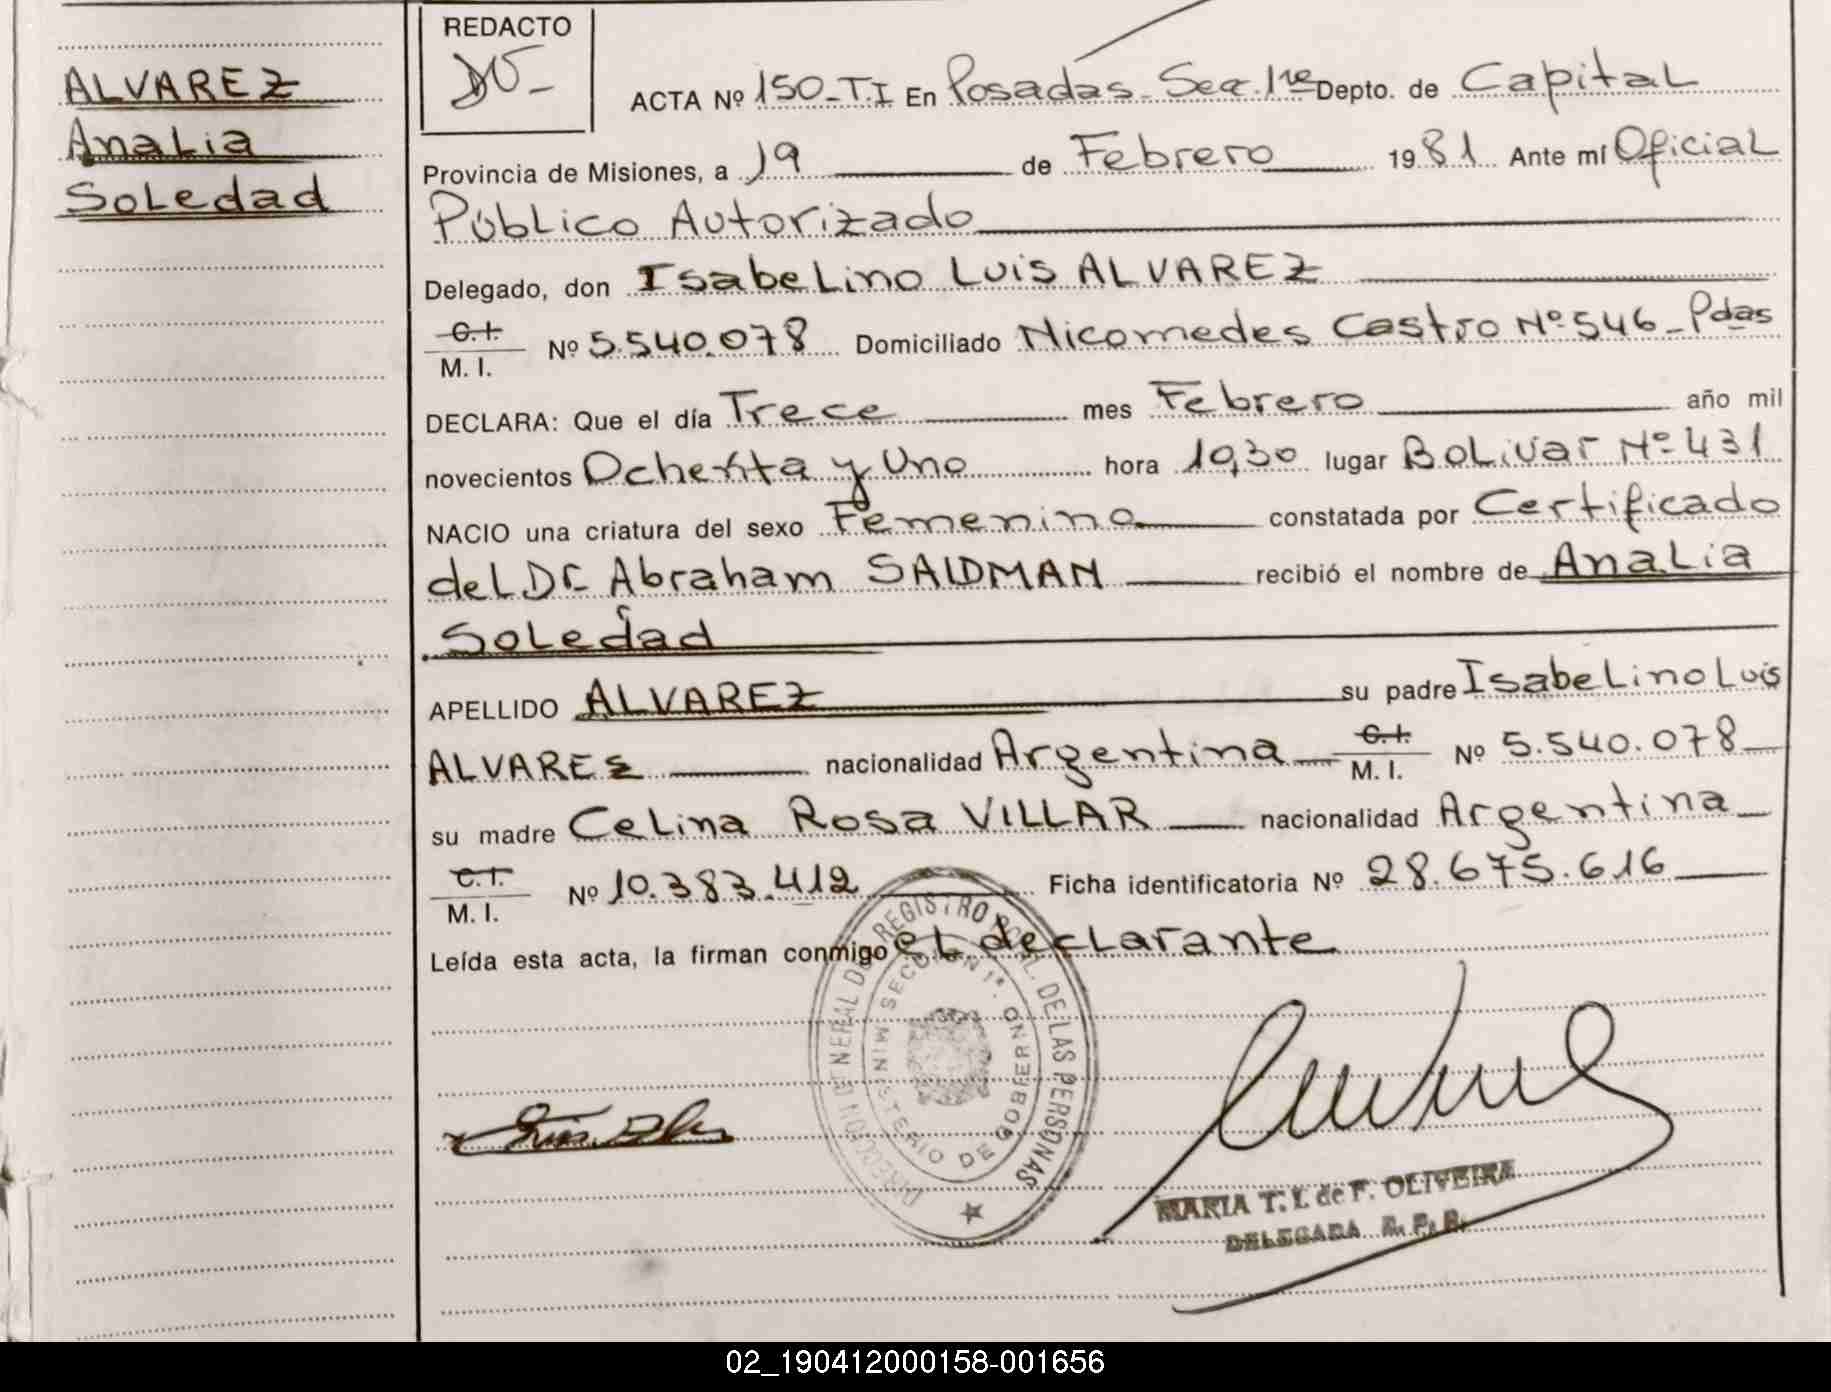 ALVAREZ
Analia
Soledad
REDACTO
ACTA Nº 150-T.I En Posadas-Sec. 1re Depto. de Capital
Provincia de Misiones, a 19 de Febrero 1981 Ante mí Oficial
Público Autorizado
Delegado, don Isabelino Luis ALVAREZ
C.I.
M. I. Nº 5.540.078 Domiciliado Nicomedes Castro Nº 546-Pdas
DECLARA: Que el día Trece mes Febrero año mil
novecientos Ochenta y Uno hora 10,30 lugar Bolivar Nº 431
NACIO una criatura del sexo Femenino constatada por Certificado
del Dr. Abraham SAIDMAN recibió el nombre de Analia
Soledad
APELLIDO ALVAREZ su padre Isabelino Luis
ALVAREZ nacionalidad Argentina C.I. M. I. Nº 5.540.078
su madre Celina Rosa VILLAR nacionalidad Argentina
C.I.
M. I. Nº 10.383.412 Ficha identificatoria Nº 28.675.616
Leída esta acta, la firman conmigo el declarante
DIRECCION GENERAL DEL REGISTRO PCIAL. DE LAS PERSONAS
MINISTERIO DE GOBIERNO SECCION 1ª.
MARIA T. I. de F. OLIVEIRA
DELEGADA
02_190412000158-001656